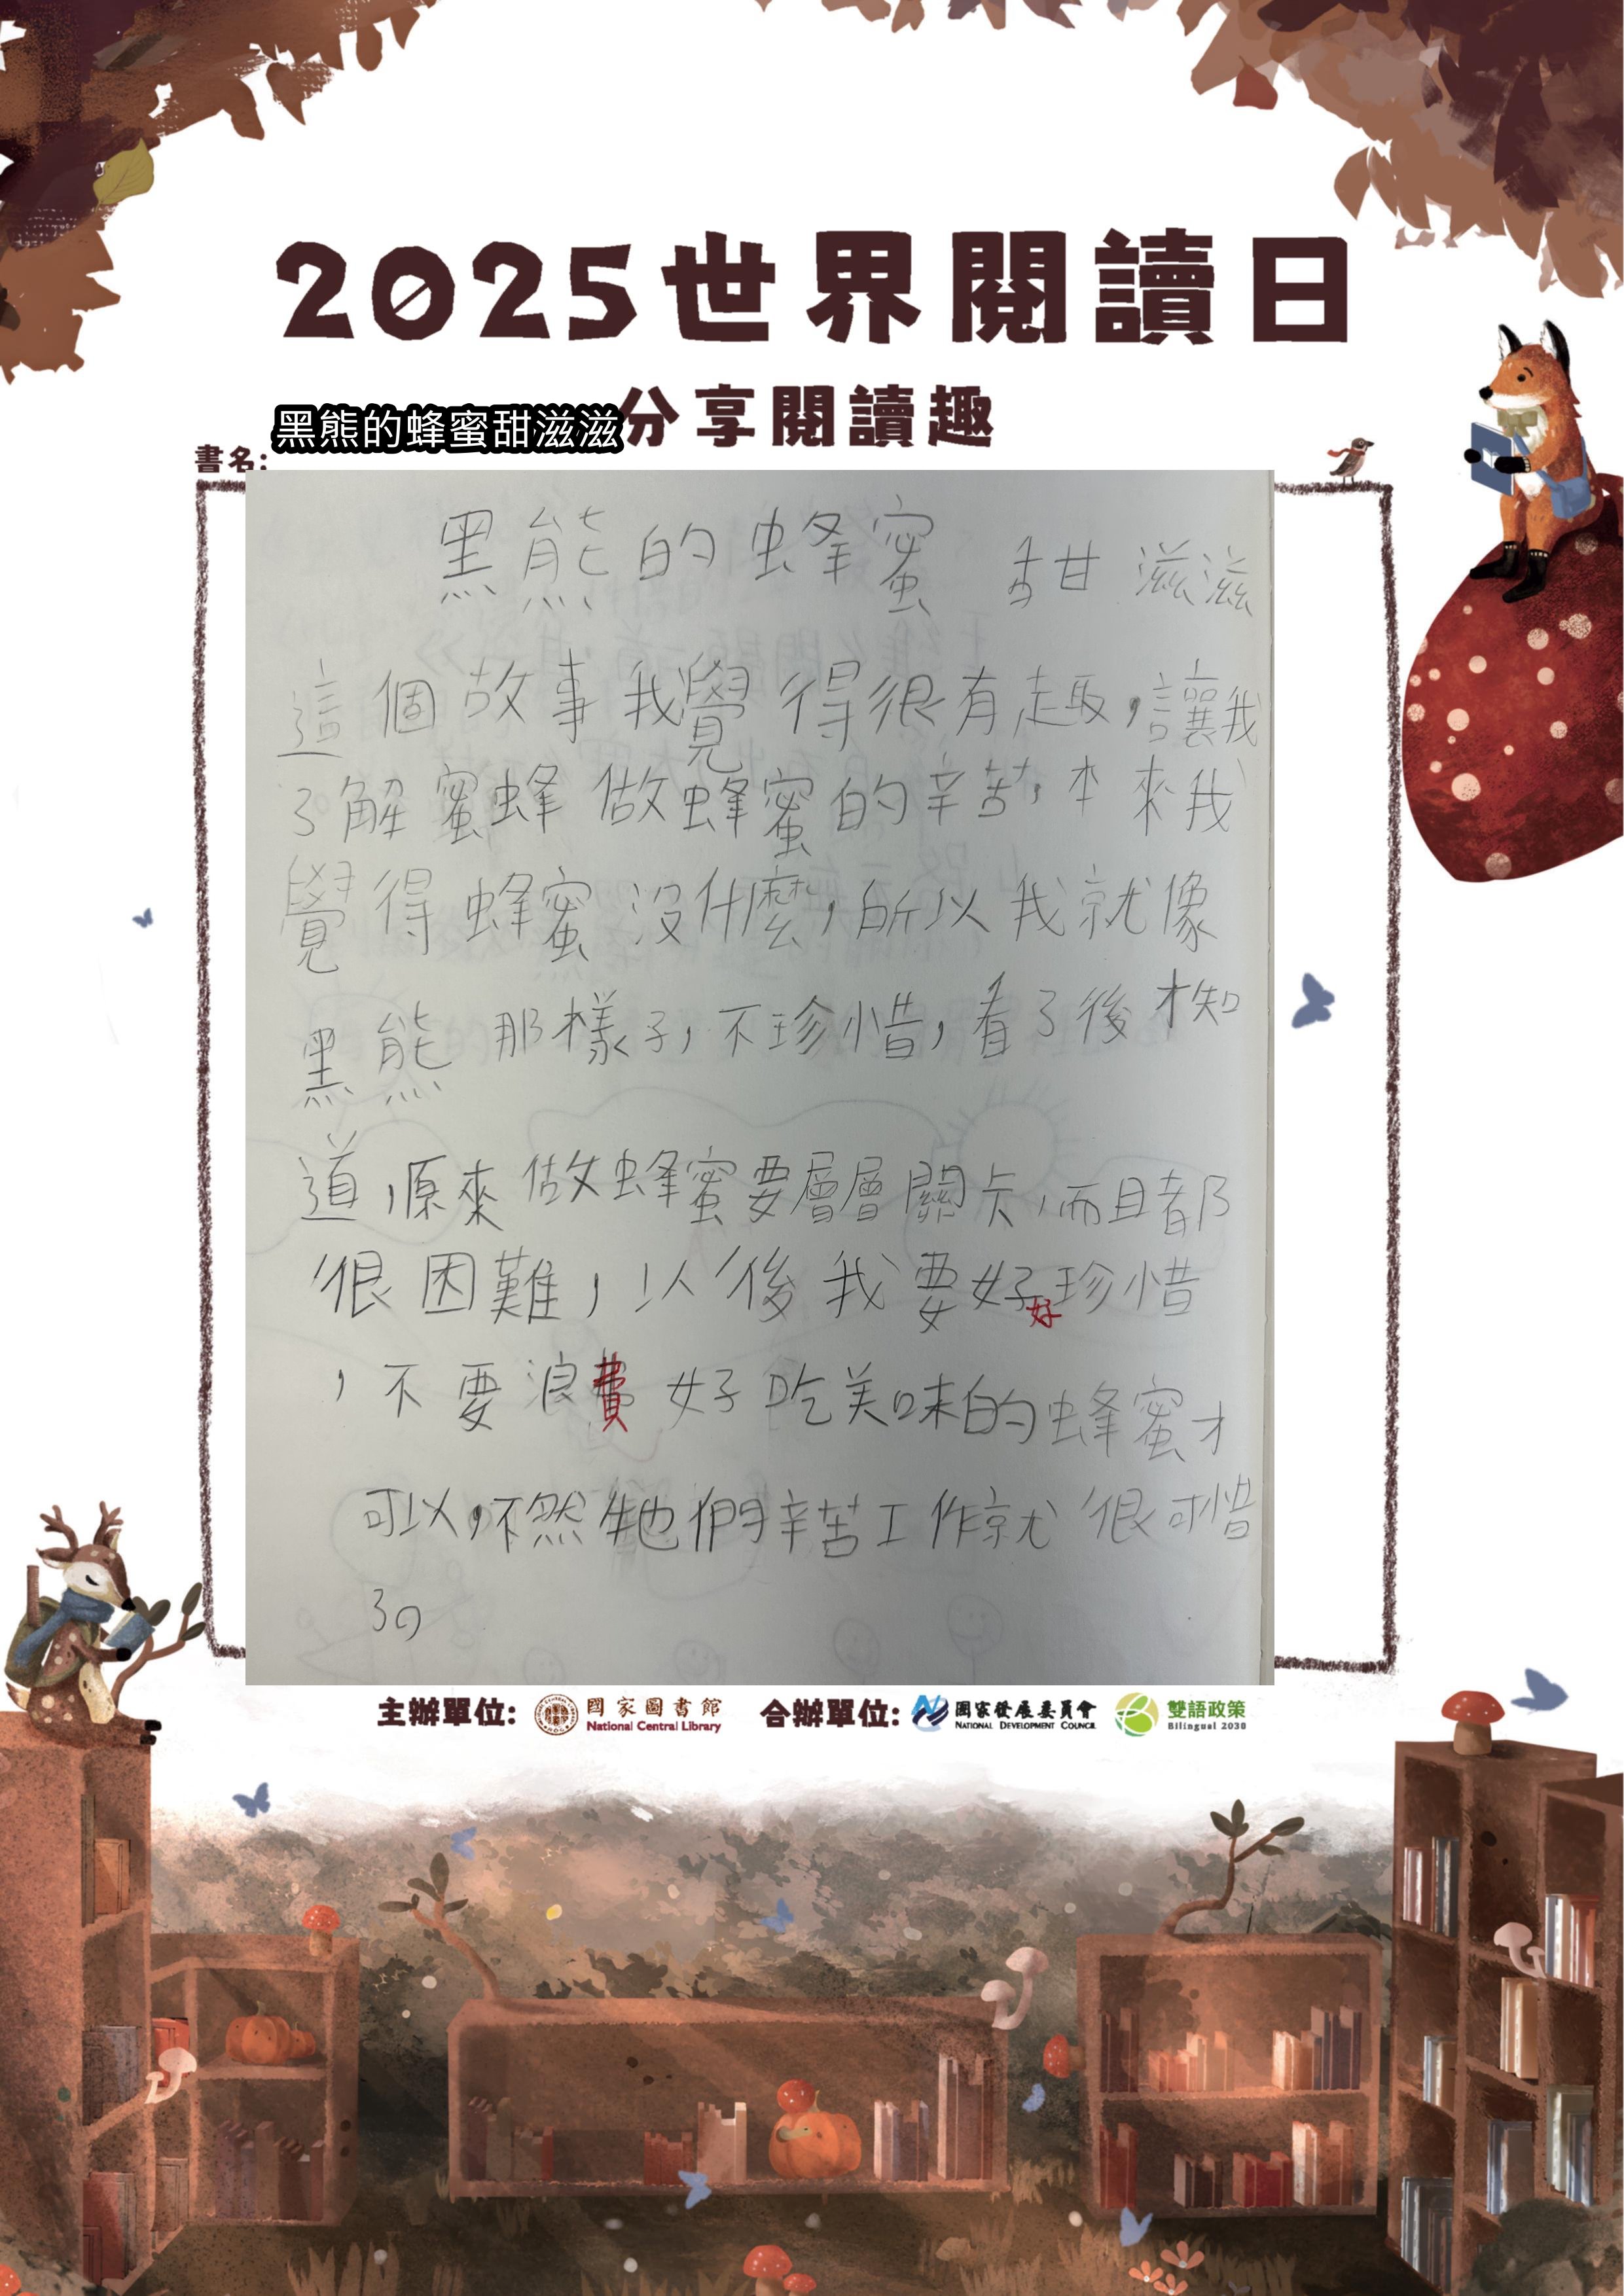 2025世界閱讀日
分享閱讀趣
書名:
黑熊的蜂蜜甜滋滋
黑熊的蜂蜜 甜滋滋
這個故事我覺得很有趣,讓我
了解蜜蜂做蜂蜜的辛苦,本來我
覺得蜂蜜沒什麼,所以我就像
黑熊那樣子,不珍惜,看了後才知
道,原來做蜂蜜要層層關卡,而且都
很困難,以後我要好好珍惜
,不要浪費好吃美味的蜂蜜才
可以,不然牠們辛苦工作就很可惜
了。
主辦單位: 國家圖書館 National Central Library 合辦單位: 國家發展委員會 NATIONAL DEVELOPMENT COUNCIL 雙語政策 Bilingual 2030